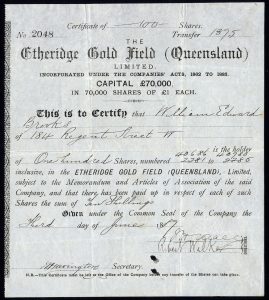 Certificate of 100 Shares.
No 2048 Transfer 1875
THE
Etheridge Gold Field (Queensland)
LIMITED.
INCORPORATED UNDER THE COMPANIES' ACTS, 1862 TO 1886.
CAPITAL £70,000,
IN 70,000 SHARES OF £1 EACH.
This is to Certify that William Edward
Brookes
of 184 Regent Street W
is the holder
of One hundred Shares, numbered
inclusive, in the ETHERIDGE GOLD FIELD (QUEENSLAND), LIMITED,
subject to the Memorandum and Articles of Association of the said
Company, and that there has been paid up in respect of each of such
Shares the sum of Ten Shillings
Given under the Common Seal of the Company the
Third day of June 1887
Robert Walker
Secretary.
N.B.—This Certificate must be left at the Company's Offices before any transfer of the Shares can take place.